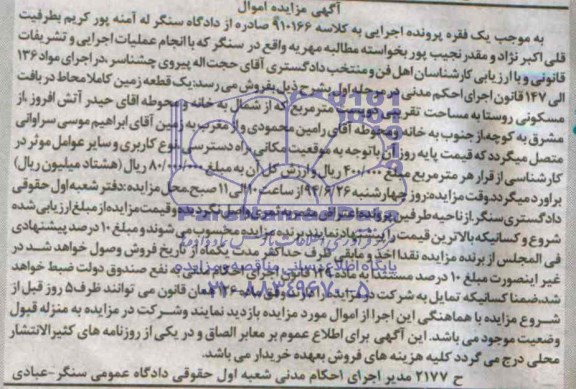 آگهی مزایده اموال
به موجب یک فقره پرونده اجرایی به کلاسه ۹۱۰۱۶۶ صادره از دادگاه سنگر له آمنه پور کریم بطرفیت
قلی اکبر نژاد و مقدر نجیب پور بخواسته مطالبه مهریه واقع در سنگر که با انجام عملیات اجرایی و تشریفات
قانونی و با ارزیابی کارشناسان اهل فن و منتخب دادگستری آقای حجت اله پیروی چشناسر، در اجرای مواد ۱۳۶
الی ۱۴۷ قانون اجرای احکم مدنی در مرحله اول بشرح ذیل بفروش می رسد: یک قطعه زمین کاملا محاط در بافت
مسکونی روستا به مساحت تقریبی دویست مترمربع که از شمال به خانه و محوطه اقای حیدر آتش افروز ،از
مشرق به کوچه از جنوب به خانه و محوطه آقای رامین محمودی و از مغرب به زمین آقای ابراهیم موسی سراوانی
متصل میگردد که قیمت پایه روز آن باتوجه به موقعیت مکانی راه دسترسی نوع کاربری و سایر عوامل موثر در
کارشناسی از قرار هر مترمربع مبلغ ۴۰۰/۰۰۰ ریال و ارزش کل آن به مبلغ ۸۰/۰۰۰/۰۰۰ ریال (هشتاد میلیون ریال)
برآورد میگردد وقت مزایده: روز چهارشنبه ۹۴/۶/۲۶ از ساعت ۱۰ الی ۱۱ صبح محل مزایده: دفتر شعبه اول حقوقی
دادگستری سنگر. از ناحیه طرفین پرونده اعتراضی واصل نگردیده و قیمت مزایده از مبلغ ارزیابی شده
شروع و کسانیکه بالاترین قیمت را پیشنهاد نمایند برنده مزایده محسوب می شوند و مبلغ ۱۰ درصد پیشنهادی
فی المجلس از برنده مزایده نقدا اخذ و مابقی ظرف حداکثر مدت یکماه از تاریخ فروش وصول خواهد شد در
غیر اینصورت مبلغ ۱۰ درصد مستندا به ماده قانون اجرای احکام مدنی به نفع صندوق دولت ضبط خواهد
شد، ضمنا کسانیکه تمایل به شرکت در مزایده را دارند وفق ماده ۱۲۶ همان قانون می توانند ظرف ۵ روز قبل از
شروع مزایده با هماهنگی این اجرا از اموال مورد مزایده بازدید نمایند وشرکت در مزایده به منزله قبول
وضعیت موجود می باشد. این آگهی برای اطلاع عموم بر معابر الصاق و در یکی از روزنامه های کثیرالانتشار
محلی درج می گردد کلیه هزینه های فروش بعهده خریدار می باشد.
ح ۲۱۷۷ مدیر اجرای احکام مدنی شعبه اول حقوقی دادگاه عمومی سنگر-عبادی